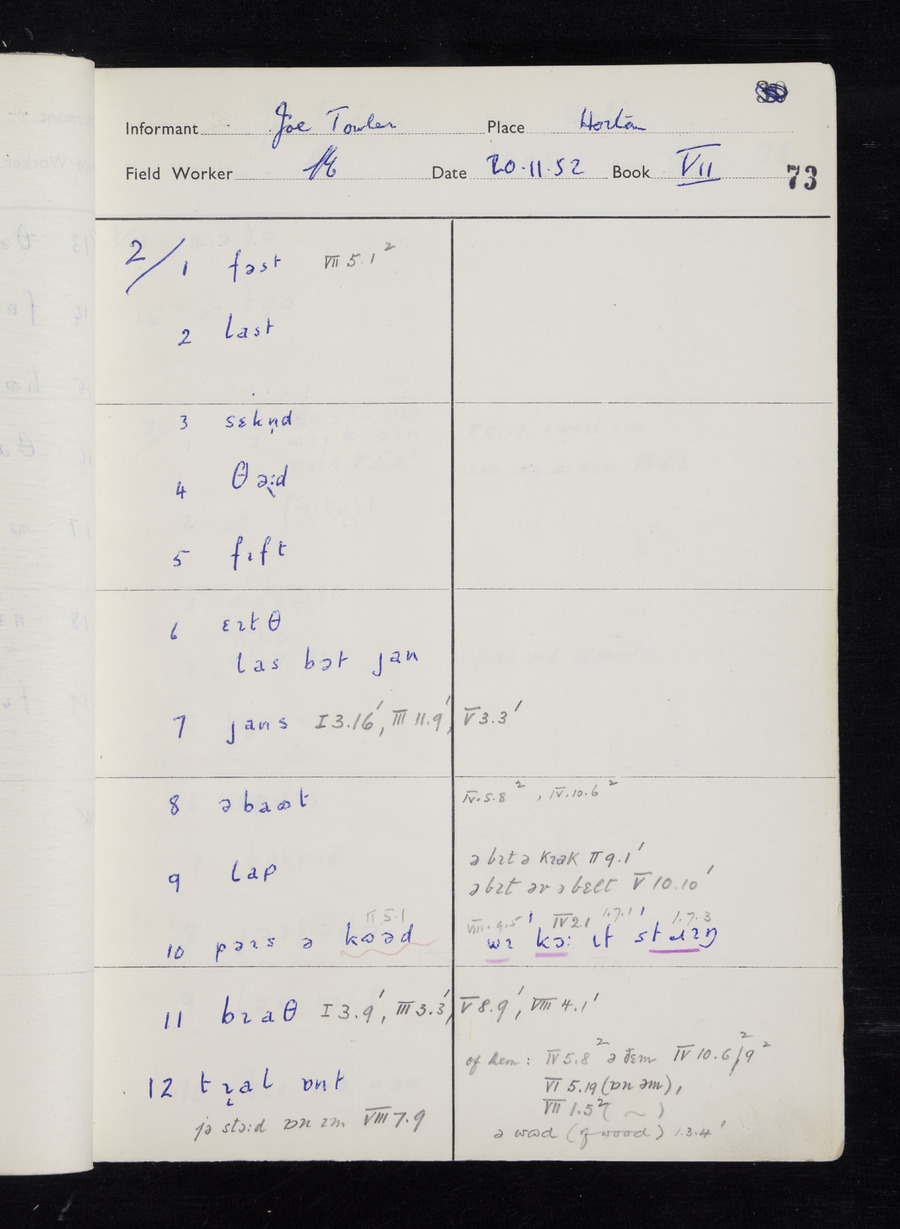 Informant Joe Towler Place Horton
Field Worker Date 20.11.52 Book VII 73
2/1 fəst VII 5.1²
2 last
3 sɛkn̩d
4 θə:d
5 fɪft
6 ɛɪtθ
las bət jan
7 jans I 3.16', III 11.9', V 3.3'
8 əbaʊt IV.5.8², IV.10.6²
9 lap ə bɪt ə kɹək II 9.1'
ə bɪt əv ə bɛlt V 10.10'
II 5.1 VIII.9.5' IV 2.1 1.7.1' 1.7.3
10 pəɪs ə kʊəd wɪ kə: ɪt
11 bɹaθ I 3.9', III 3.3', V 8.9', VIII 4.1'
of hem: IV 5.8² ə ðem IV 10.6²/9²
12 tɹ̩al ɒnt VI 5.19 (ɒn əm),
VII 1.5² ( ~ )
jə stə:d ɒn ɪm VIII 7.9
ə wʊd (of wood) 1.3.4'